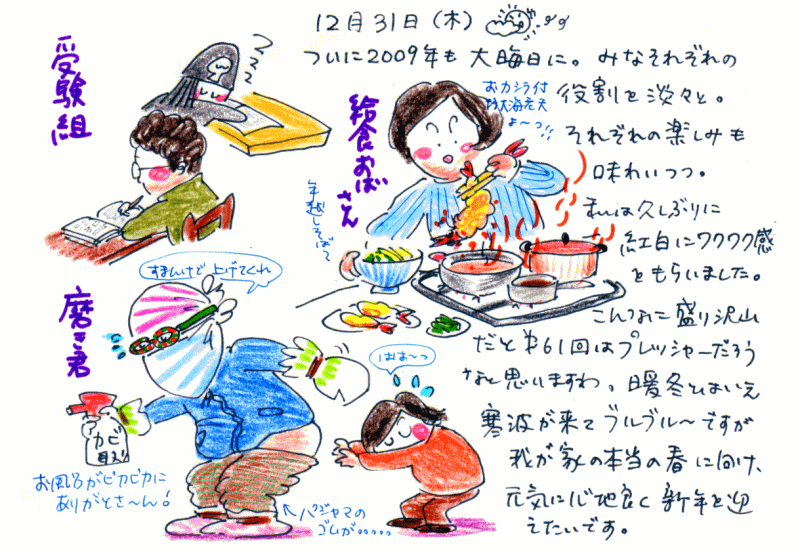 12月31日(木)
ついに2009年も 大晦日に。みなそれぞれの
役割を淡々と。
それぞれの楽しみも
味わいつつ。
私は久しぶりに
紅白にワクワク感
をもらいました。
こんなに盛り沢山
だと第61回はプレッシャーだろう
なと思いますわ。暖冬とはいえ
寒波が来てブルブル〜ですが
我が家の本当の春に向け、
元気に心地良く新年を迎
えたいです。
受験組
zzzz
給食おばさん
おカシラ付
特大海老天
よ〜っ!!
年越しそばで
磨き君
すまんけど上げてくれ
はぁ〜っ
カビ
お風呂がピカピカに
ありがとさ〜ん!
パジャマの
ゴムが.....